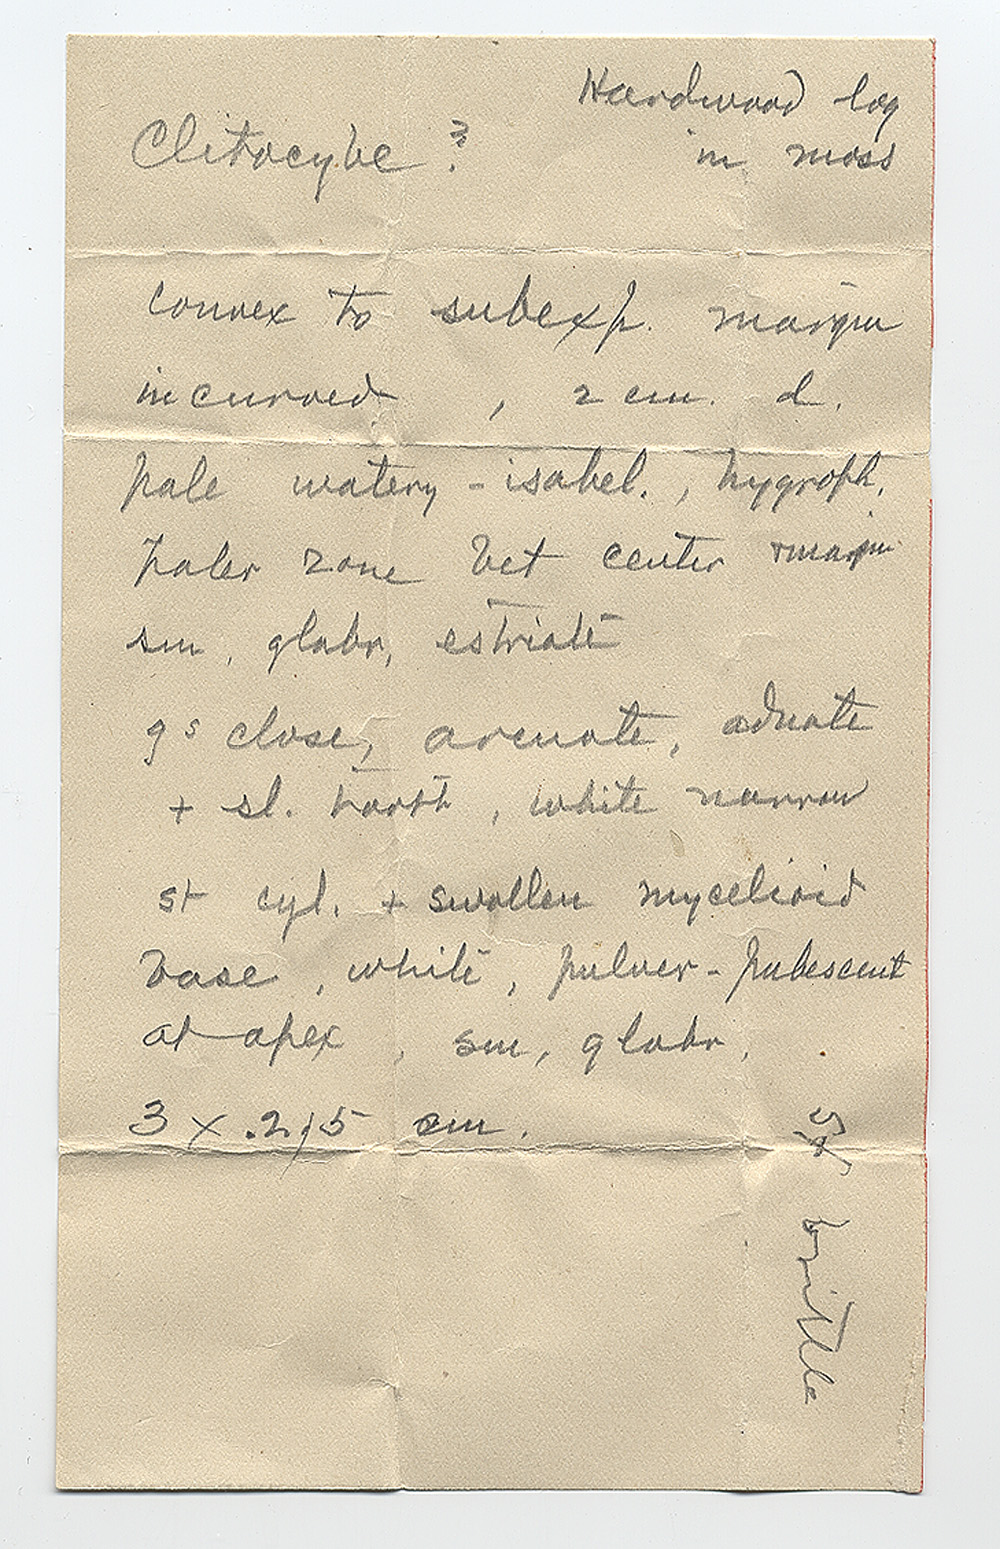 Hardwood log
in moss
Clitocybe ?
convex to subexp. margin
incurved , 2 cm. d.
pale watery - isabel. , hygroph,
paler zone bet center + margin
sm , glabr, estriate
gs close, arcuate, adnate
+ sl. tooth , white narrow
st cyl. + swollen mycelioid
base , white , pulver - pubescent
at apex , sm, glabr ,
3 x .2,5 cm.
brittle